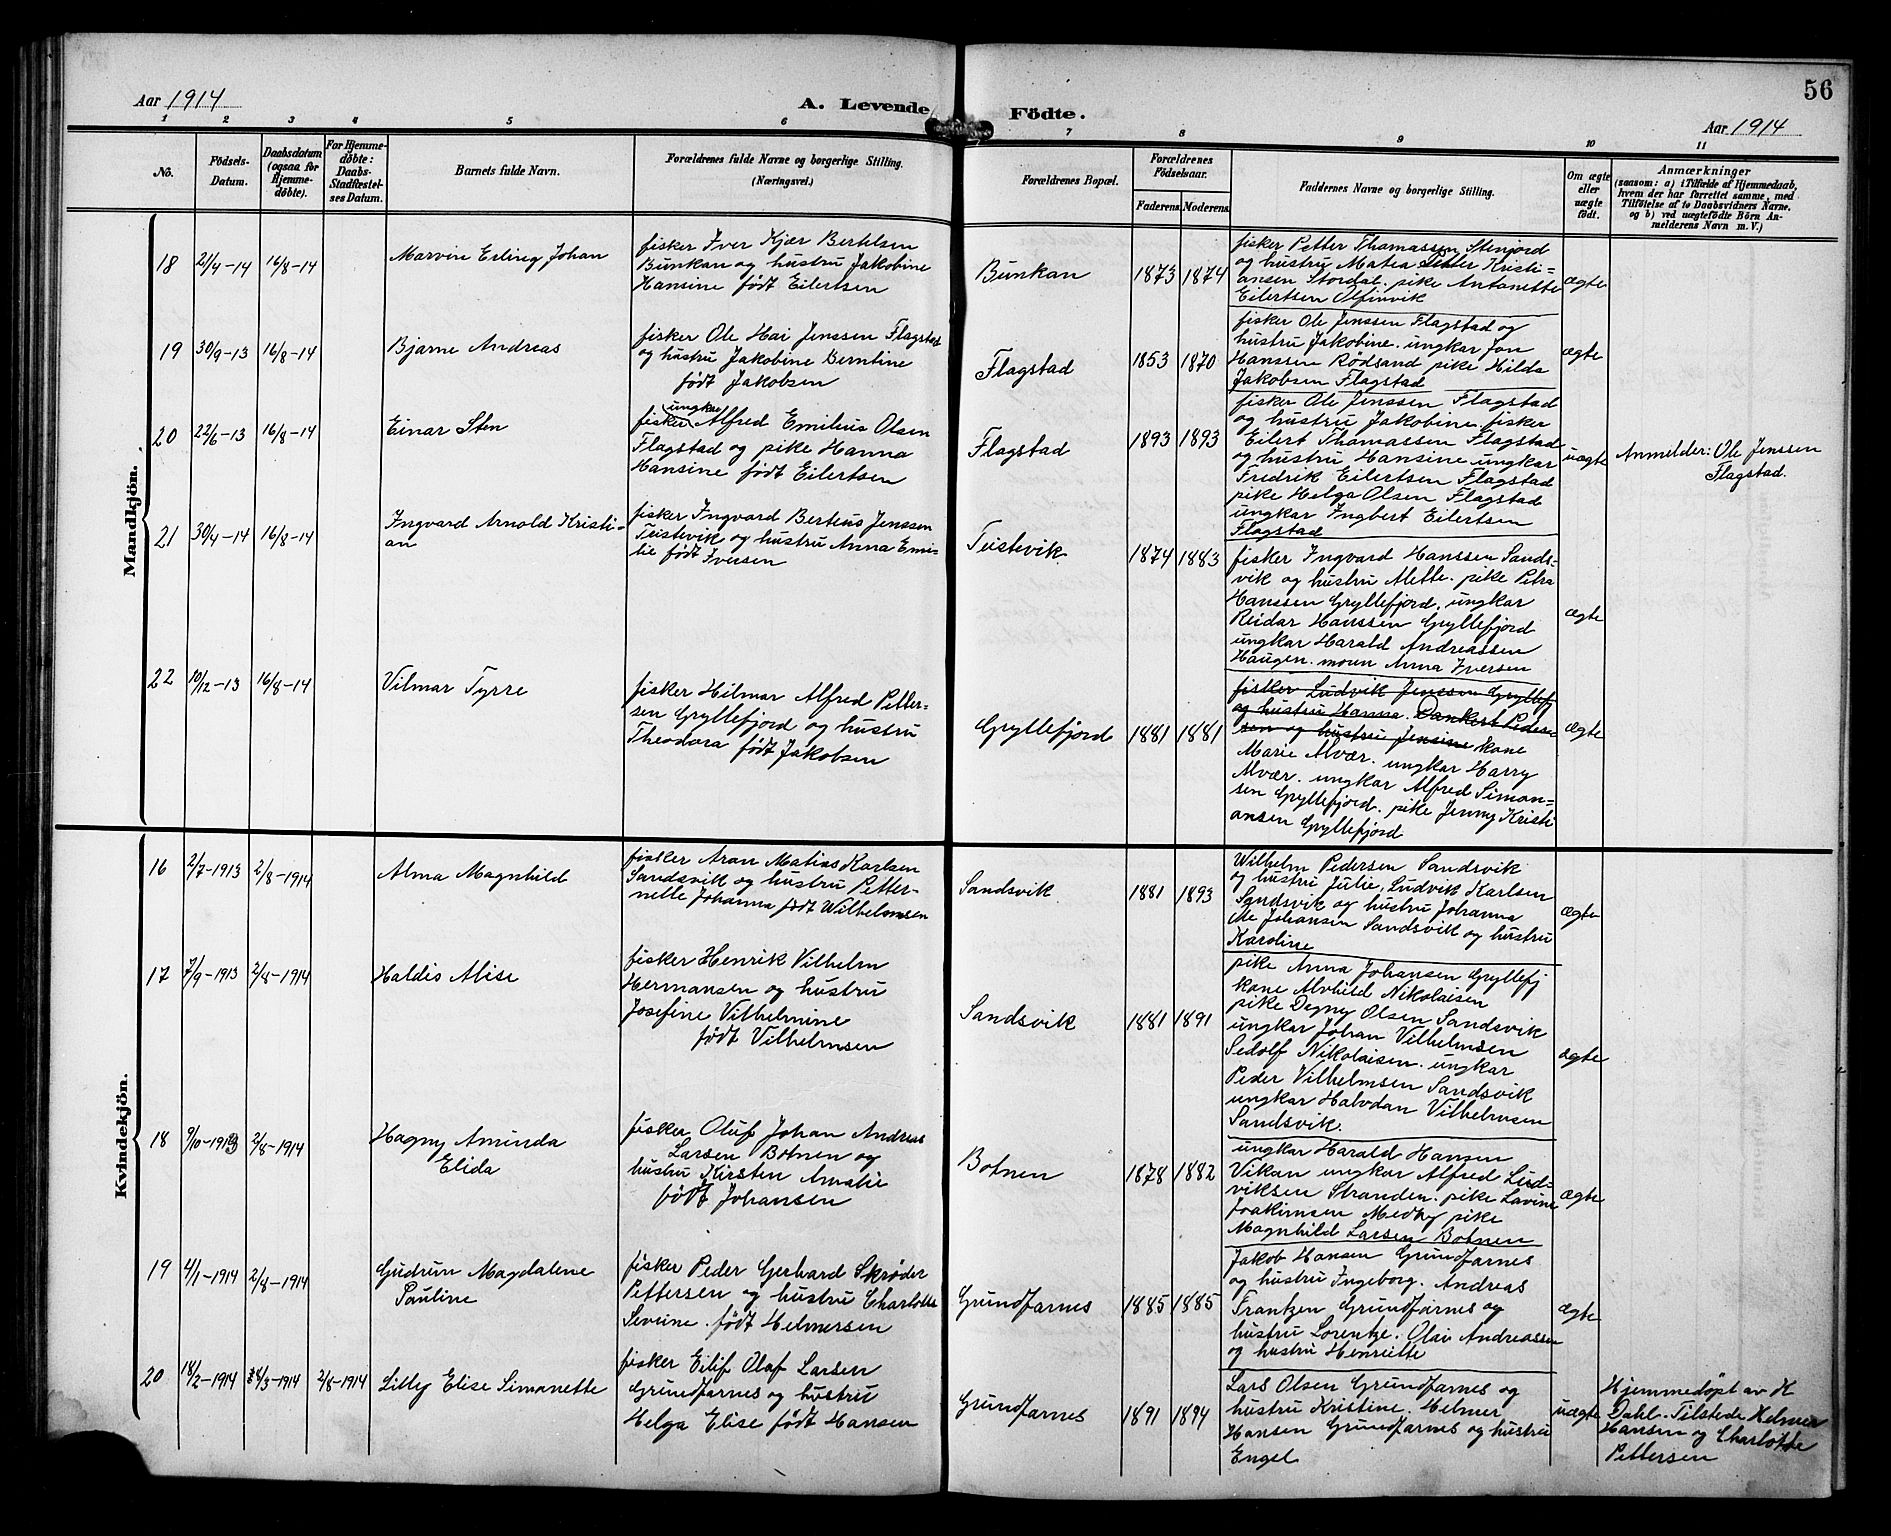 56
Aar 1914
A. Levende
Födte.
Aar 1914
1 2 3 4 5 6 7 8 9 10 11
No.
Födsels-
Datum.
Daabsdatum
(ogsaa for
Hjemme-
døbte).
For Hjemme-
døbte:
Daabs-
Stadfæstel-
ses Datum.
Barnets fulde Navn.
Forældrenes fulde Navne og borgerlige Stilling.
(Næringsvei.)
Forældrenes Bopæl.
Forældrenes
Födselsaar.
Faderens.
Moderens.
Faddernes Navne og borgerlige Stilling.
Om ægte
eller
uægte
født.
Anmærkninger
(saasom: a) i Tilfælde af Hjemmedaab,
hvem der har forrettet samme, med
Tilföielse af to Daabsvidners Navne.
og b) ved uægtefödte Börn An-
melderens Navn m. V.)
Mandkjön.
18 2/4-14 16/8-14
Marvin Erling Johan
fisker Iver Kjær Bertelsen
Bunkan og hustru Jakobine
Hansine født Eilertsen
Bunkan
1873 1874
fisker Petter Thomassen Stenjord
og hustru Matea Petter Kristi=
ansen Stordal. pike Antonette
Eilertsen Olfinvik
ægte
19 30/9-13 16/8-14
Bjarne Andreas
fisker Ole Hai Jenssen Flagstad
og hustru Jakobine Berntine
født Jakobsen
Flagstad
1853 1870
fisker Ole Jenssen Flagstad og
hustru Jakobine. ungkar Jon
Hanssen Rødsand pike Hilda
Jakobsen Flagstad
ægte
20 22/6-13 16/8-14
Einar Sten
ungkar
fisker Alfred Emilius Olsen
Flagstad og pike Hanna
Hansine født Eilertsen
Flagstad
1893 1893
fisker Ole Jenssen Flagstad
og hustru Jakobine. fisker
Eilert Thomassen Flagstad
og hustru Hansine ungkar
Fredrik Eilertsen Flagstad
pike Helga Olsen Flagstad
ungkar Ingbert Eilertsen
Flagstad
uægte
Anmelder: Ole Jenssen
Flagstad.
21 30/4-14 16/8-14
Ingvard Arnold Kristi-
an
fisker Ingvard Berteus Jenssen
Teistevik og hustru Anna Emi-
lie født Iversen
Teistevik
1874 1883
fisker Ingvard Hanssen Sands-
vik og hustru Alette. pike Petra
Hanssen Gryllefjord. ungkar
Reidar Hanssen Gryllefjord
ungkar Harald Andreassen
Haugen. moren Anna Iversen
ægte
22 10/12-13 16/8-14
Vilmar Tyrre
fisker Hilmar Alfred Petter-
sen Gryllefjord og hustru
Theodora født Jakobsen
Gryllefjord
1881 1881
fisker Ludvik Jenssen Gryllefj
og hustru Hanna. Dankert Peder
sen og hustru Jensine kone
Marie Alvær. ungkar Harry
Alvær. ungkar Alfred Simon=
sen Gryllefjord. pike Jenny Kristi
ansen Gryllefjord
ægte
Kvindekjön.
16 2/7-1913 2/8-1914
Alma Magnhild
fisker Aran Matias Karlsen
Sandsvik og hustru Petter-
nelle Johanna født Wilhelmsen
Sandsvik
1881 1893
Wilhelm Pedersen Sandsvik
og hustru Julie, Ludvik Karlsen
Sandsvik og hustru Johanna
Ole Johansen Sandsvik og hustru
Karoline
ægte
17 7/9-1913 2/8-1914
Haldis Alise
fisker Henrik Vilhelm
Hermansen og hustru
Josefine Vilhelmine
født Vilhelmsen
Sandsvik
1881 1891
pike Anna Johansen Gryllefj
kone Alvhild Nikolaisen
pike Degny Olsen Sandsvik
ungkar Johan Vilhelmsen
Sedolf Nikolaisen. ungkar
Peder Vilhelmsen Sandsvik
ungkar Halvdan Vilhelmsen
Sandsvik.
ægte
18 9/10-1913 2/8-1914
Hagny Aminda
Elida
fisker Oluf Johan Andreas
Larsen Botnen og
hustru Kirsten Amalie
født Johansen
Botnen
1878 1882
ungkar Harald Hansen
Vikan ungkar Alfred Lud-
viksen Stranden. pike Lavine
Joakimsen Medby pike
Magnhild Larsen Botnen
ægte
19 4/1-1914 2/8-1914
Gudrun Magdalene
Pauline
fisker Peder Gerhard Skrøder
Pettersen og hustru Charlotte
Severine. født Helmersen
Grundfarnes
1885 1885
Jakob Hansen Grundfarnes
og hustru Ingeborg. Andreas
Frantzen Grundfarnes og
hustru Lorentze. Olav Andreassen
og hustru Henriette
ægte
20 14/2-1914 24/3-1914 2/8-1914
Lilly Elise Simonette
fisker Eilif Olaf Larsen
Grundfarnes og hustru
Helga Elise født Hansen
Grundfarnes
1891 1894
Lars Olsen Grundfarnes og
hustru Kristine. Helmer
Hansen Grundfarnes og hustru
Engel
uægte
Hjemmedøpt av K
Dahl. Tilstede Helmer
Hansen og Charlotte
Pettersen